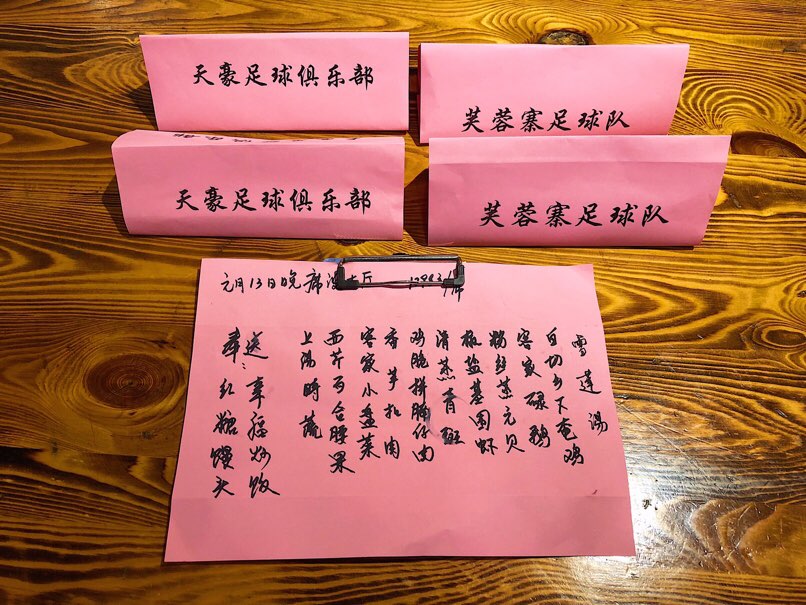 天豪足球俱乐部
芙蓉寨足球队
天豪足球俱乐部
芙蓉寨足球队
元月13日晚席
雪莲汤
白切乡下奄鸡
客家碌鹅
粉丝蒸元贝
椒盐基围虾
清蒸青斑
鸡脆拼胸仔肉
香芋扣肉
客家小盆菜
西芹百合腰果
上汤时蔬
送：幸福炒饭
奉：红糖馒头